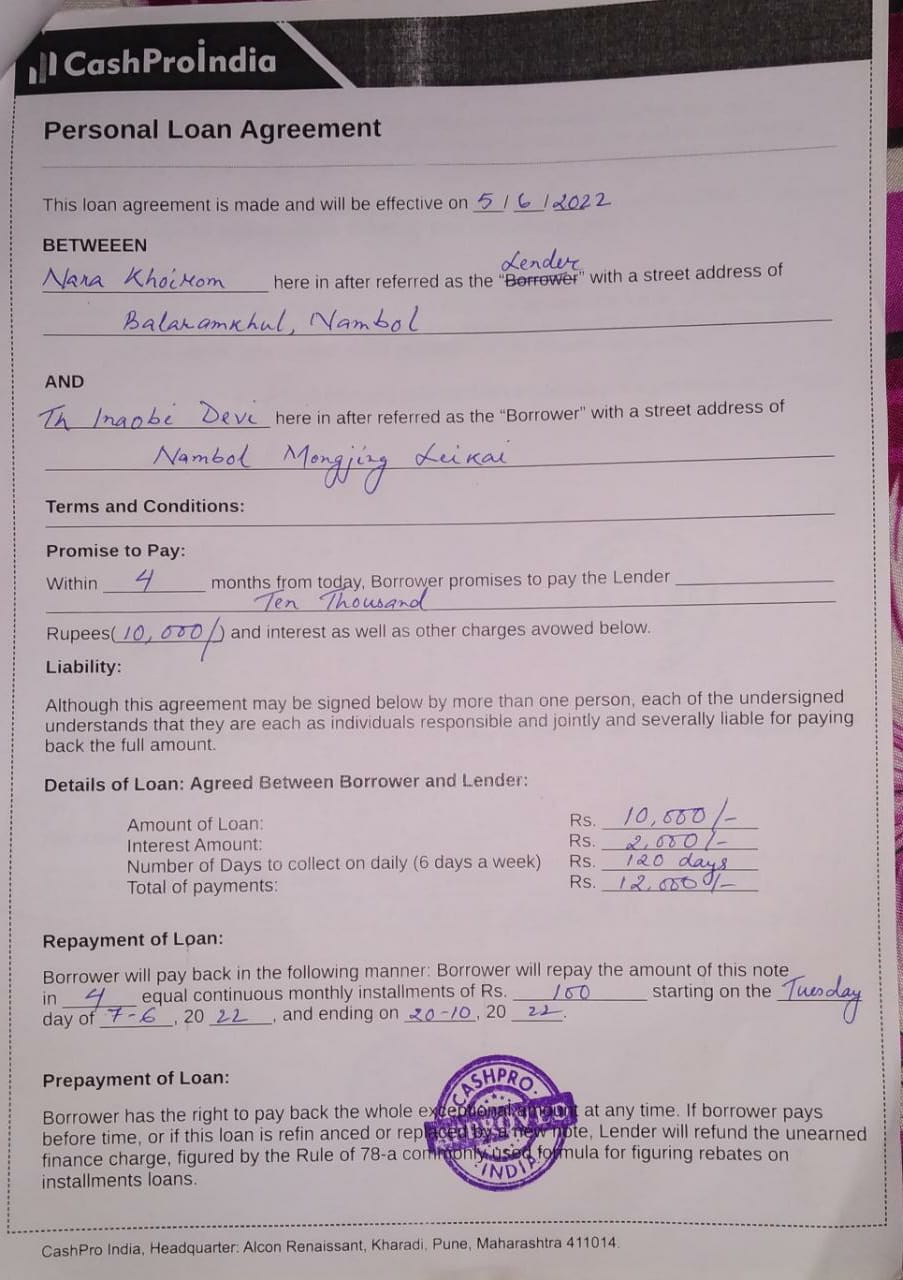 CashProİndia
Personal Loan Agreement
This loan agreement is made and will be effective on 5/6/2022
BETWEEEN
Lender
Nara Khoirom here in after referred as the “Borrower” with a street address of
Balaramkhul, Nambol
AND
Th Inaobi Devi here in after referred as the “Borrower” with a street address of
Nambol Mongjing Leikai
Terms and Conditions:
Promise to Pay:
Within 4 months from today, Borrower promises to pay the Lender
Ten Thousand
Rupees(10,000/) and interest as well as other charges avowed below.
Liability:
Although this agreement may be signed below by more than one person, each of the undersigned
understands that they are each as individuals responsible and jointly and severally liable for paying
back the full amount.
Details of Loan: Agreed Between Borrower and Lender:
Amount of Loan: Rs. 10,000/-
Interest Amount: Rs. 2,000/-
Number of Days to collect on daily (6 days a week) Rs. 120 days
Total of payments: Rs. 12,000/-
Repayment of Loan:
Borrower will pay back in the following manner: Borrower will repay the amount of this note
in 4 equal continuous monthly installments of Rs. 100 starting on the Tuesday
day of 7-6, 20 22, and ending on 20-10, 20 22.
Prepayment of Loan:
Borrower has the right to pay back the whole exceptional amount at any time. If borrower pays
before time, or if this loan is refin anced or replaced by a new note, Lender will refund the unearned
finance charge, figured by the Rule of 78-a commonly used formula for figuring rebates on
installments loans.
CASHPRO
INDIA
CashPro India, Headquarter: Alcon Renaissant, Kharadi, Pune, Maharashtra 411014.